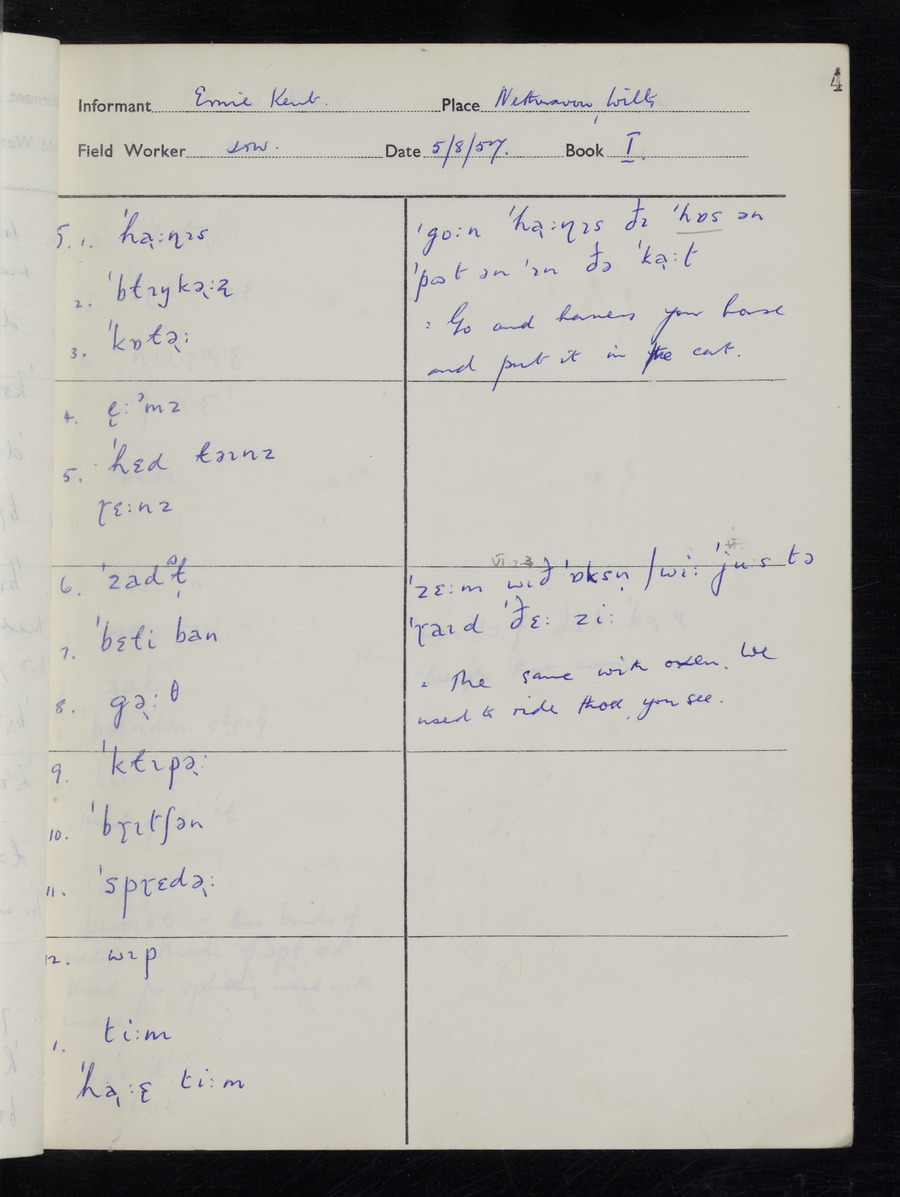 4
Informant Ernie Kent. Place Netheravon, Wilts
Field Worker Date 5/8/57. Book I.
5. 1. ˈha̢:ɳɪs
2. ˈbtɪykə̢:
3. ˈkɒtə̢:
4. ę:ᵊmz
5. ˈhɛd təɪnz
ɽɛ:nz
6. ˈzad
7. ˈbɛti ban
8. gə̢:θ
9. ˈktɪpə̢:
10. ˈbɽɪtʃən
11. ˈspɽɛdə̢:
12. wɪp
1. ti:m
ti:m
ˈgo:n ˈha̢:ɳɪs ðɪ ˈhɒs ən
ən ˈɪn ðə ˈka̢:t
: Go and harness your horse
and put it in the cart.
VI. 7. 3 VI.
ˈzɛ:m wið ˈɒksn̩ /wi: ˈju:s tə
ˈɽaɪd ˈðɛ: zi:
: The same with oxen. We
used to ride those, you see.